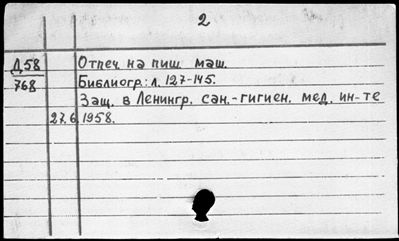 2
Д58 Отпеч. на пиш. маш.
768 Библиогр.: л. 127-145.
Защ. в Ленингр. сан.-гигиен. мед. ин-те
27.6.1958.